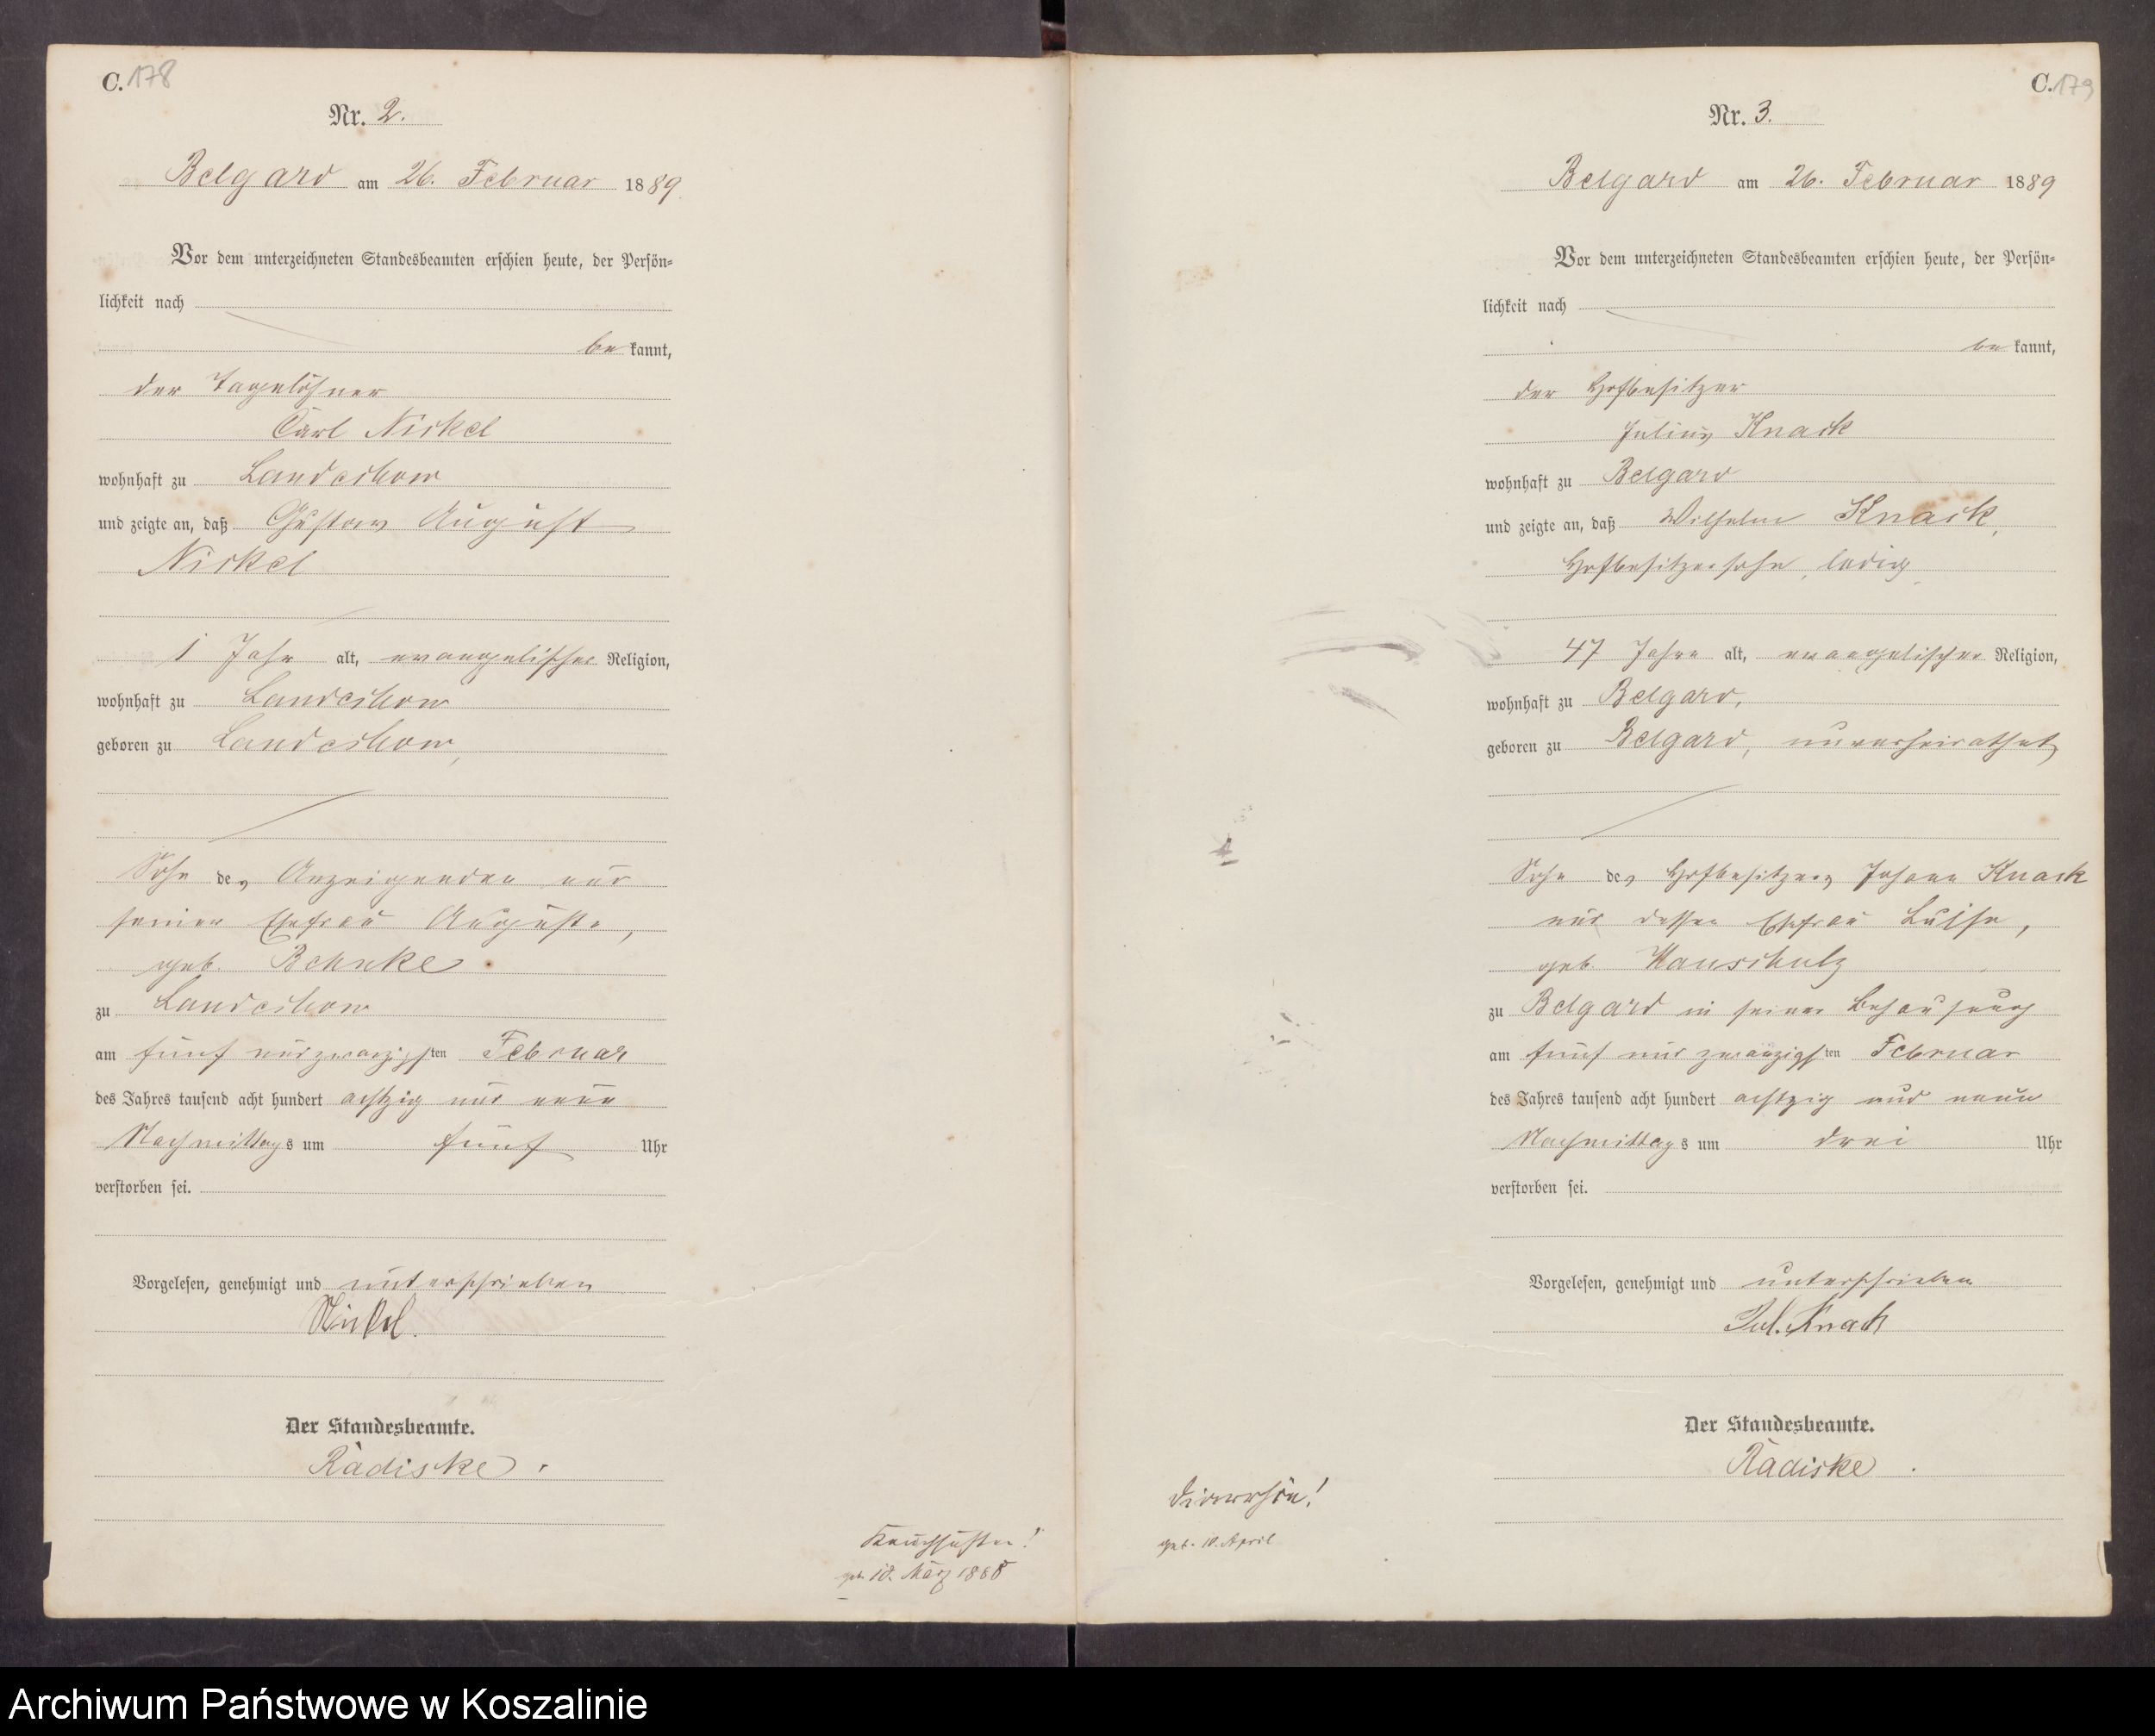 C. 178
Nr. 2.
Belgard am 26. Februar 1889.
Vor dem unterzeichneten Standesbeamten erschien heute, der Persön-
lichkeit nach
be kannt,
der Tagelöhner
Carl Nickel
wohnhaft zu Landechow
und zeigte an, daß Gustav August
Nickel
1 Jahr alt, evangelischer Religion,
wohnhaft zu Landechow
geboren zu Landechow,
Sohn des Anzeigenden und
seiner Ehefrau Auguste,
geb. Behnke
zu Landechow
am fünf und zwanzigsten Februar
des Jahres tausend acht hundert achtzig und neun
Nachmittags um fünf Uhr
verstorben sei.
Vorgelesen, genehmigt und unterschrieben
Nickel.
Der Standesbeamte.
Radiske.
Keuchhusten!
geb. 18. März 1888
C. 179
Nr. 3.
Belgard am 26. Februar 1889
Vor dem unterzeichneten Standesbeamten erschien heute, der Persön-
lichkeit nach
be kannt,
der Hofbesitzer
Julius Knack
wohnhaft zu Belgard
und zeigte an, daß Wilhelm Knack,
Hofbesitzersohn, ledig,
47 Jahre alt, evangelischer Religion,
wohnhaft zu Belgard,
geboren zu Belgard, unverheirathet
Sohn des Hofbesitzers Johann Knack
und dessen Ehefrau Luise,
geb.
zu Belgard in seiner Behausung
am fünf und zwanzigsten Februar
des Jahres tausend acht hundert achtzig und neun
Nachmittags um drei Uhr
verstorben sei.
Vorgelesen, genehmigt und unterschrieben
Jul. Knack
Der Standesbeamte.
Radiske.
geb. 10. April
Archiwum Państwowe w Koszalinie